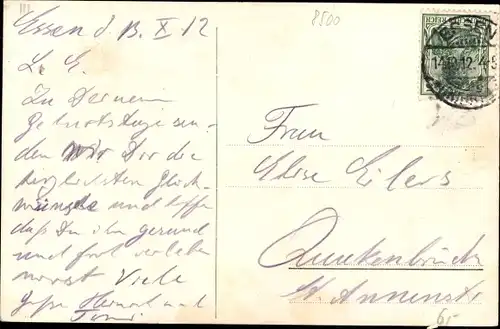 Essen d. 13. X 12
L. E.
Zu Deinem
Geburtstage sen-
den wir Dir die
herzlichsten Glück-
wünsche und hoffen
daß Du ihn gesund
und froh verleben
wirst Viele
Grüße Heinrich und
8500
ESSEN
14.10.12.4-5
Frau
Elise Eilers
Quakenbrück
St. Annenstr